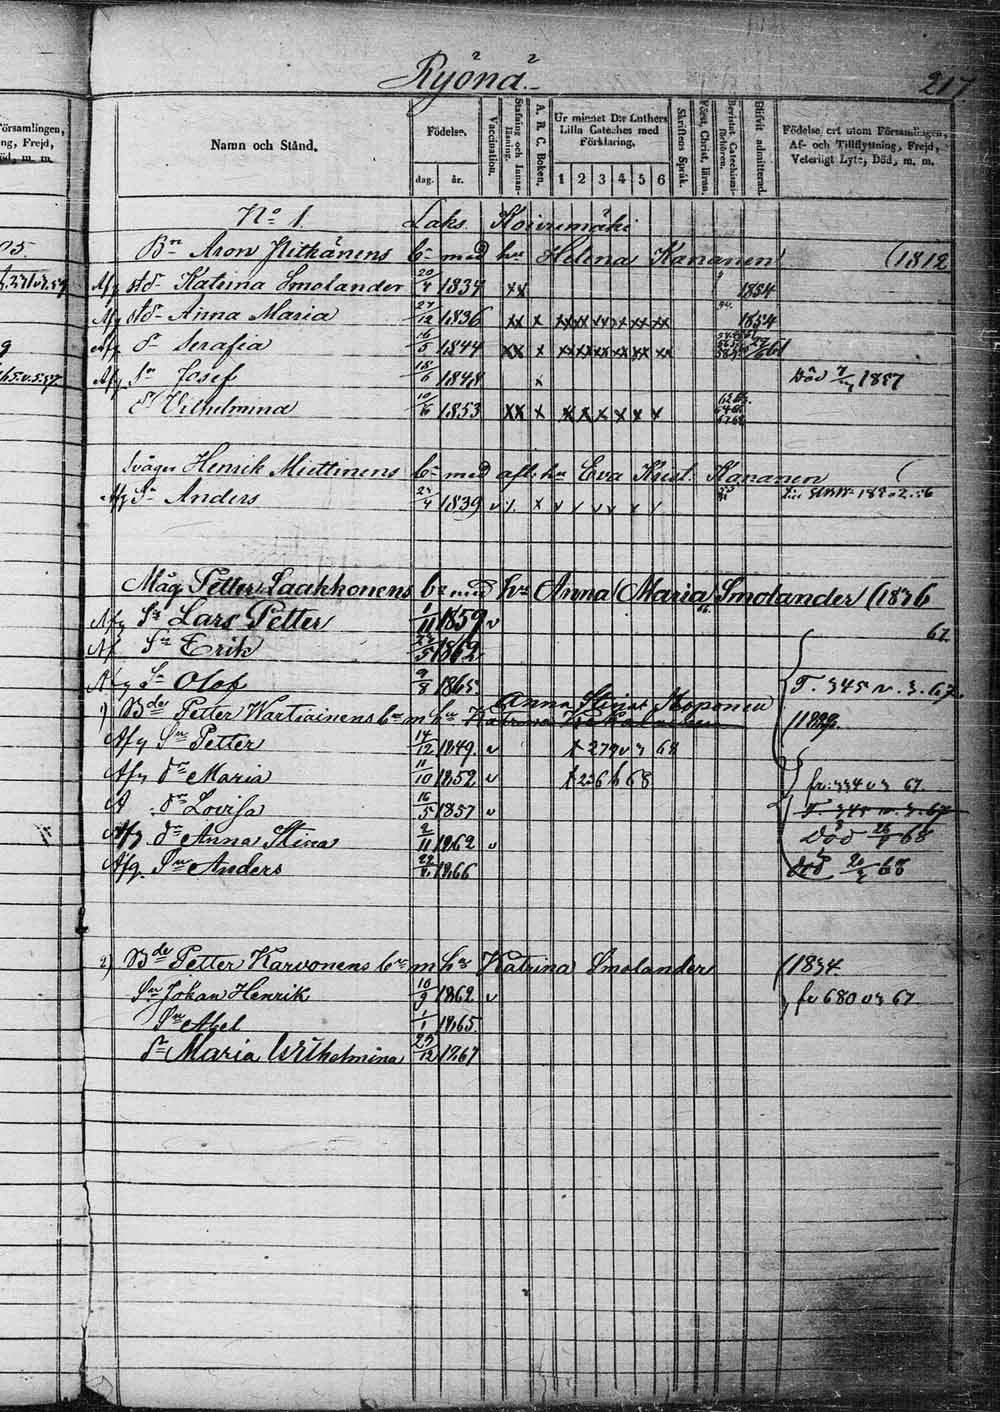 Ryönä
217.
örsamlingen,
ng, Frejd,
öd, m. m.
Namn och Stånd.
Födelse.
dag. år.
Vaccination.
Stafning och Innan-läsning.
A. B. C. Boken.
Ur minnet D:r Luthers
Lilla Cateches med
Förklaring.
1 2 3 4 5 6
Skriftens Språk.
Först. Christ. läran.
Bevistat Catechismi-förhören.
Blifvit admitterad.
Födelse ort utom Församlingen,
Af- och Tillflyttning, Frejd,
Veterligt Lyte, Död, m. m.
No 1 Laks Koivumäki
Bn Aron Pitkänens bn med hu Helena Kananen (1812
Afg std Katrina Smolander 20/4 1834 xx 1854
Afg std Anna Maria 27/12 1836 xx x xx xx xx x xx xx 1854
Afg dr Serafia 16/5 1844 xx x
Afg Sn Josef 18/6 1848 x Död 1857
d Vilhelmina 10/6 1853 xx x x x x x x x
Svåger Henrik Miettinens bn med afl. hu Eva Krist. Kananen (
Afg Sn Anders 27/4 1839 v
Måg Petter Laakkonens bn med hu Anna Maria Smolander (1836
Afg Sn Lars Petter 1/11 1859 v
67.
Af Sn Erik 23/5 1862.
Afg Sn Olof 9/8 1865. T. 345 v. 3. 67.
Anna Stina Koponen
1) Bde Petter Wartiainens bn m hu Katrina 1829.
Afg Sn Petter 14/12 1849. v t 279 v 3 68
Afg dr Maria 11/10 1852 v t 236 h 68 fr. 334 v 3 67.
A dr Lovisa 16/5 1857 v T. 345 v. 3. 67
Afg dr Anna Stina 2/11 1862 v Död 68
Afg. Sn Anders 1866 död 68
2) Bde Petter Karvonens bn m hu Katrina Smolander (1834
Sn Johan Henrik 10/9 1862 v fr 680 v 3 67
Sn Abel 1/1 1865.
dr Maria Wilhelmina 25/12 1867